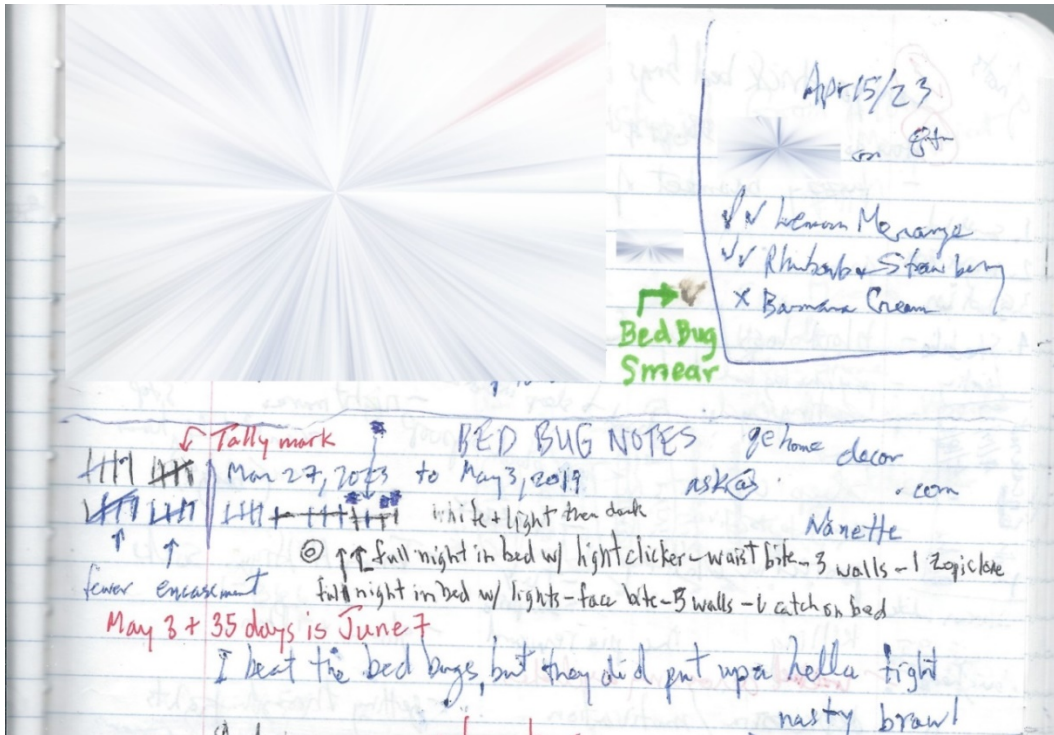 Apr 15/23
on
✓✓ Lemon Merange
✓✓ Rhubarb & Strawberry
x Banana Cream
Bed Bug
Smear
Tally mark
BED BUG NOTES
gehome decor
Mar 27, 2023 to May 3, 2019
ask@ .com
white + light then dark
Nanette
full night in bed w/ light clicker - waist bite - 3 walls - 1 Zopiclone
fewer encasement
full night in bed w/ lights - face bite - 5 walls - 1 catch on bed
May 3 + 35 days is June 7
I beat the bed bugs, but they did put up a hella fight
nasty brawl